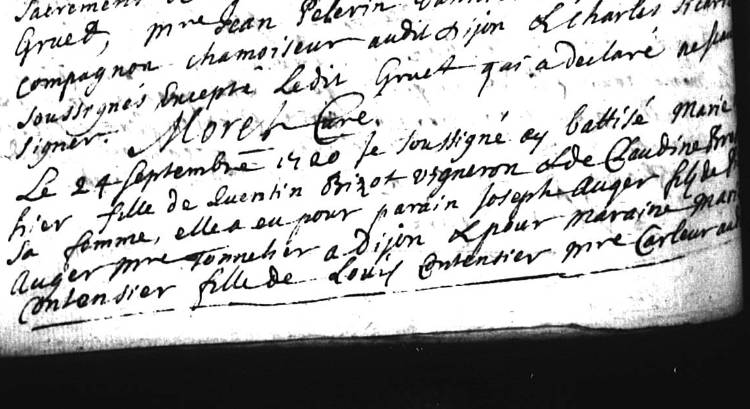 Sacrement de
Gruet, mre Jean Pelerin
compagnon chamoiseur audit Dijon & Charles
soussignés Excepté Ledit Gruet qui a declaré
signer. Moret Curé.
Le 24 septembre 1720 Je soussigné ay battisé Marie
hier fille de Quentin Bizot vigneron & de Claudine
sa femme, elle a eu pour parain Joseph Auger fils de
Auger mre Tonnelier a Dijon & pour maraine Marie
Contensier fille de Louis Contensier mre Carleur